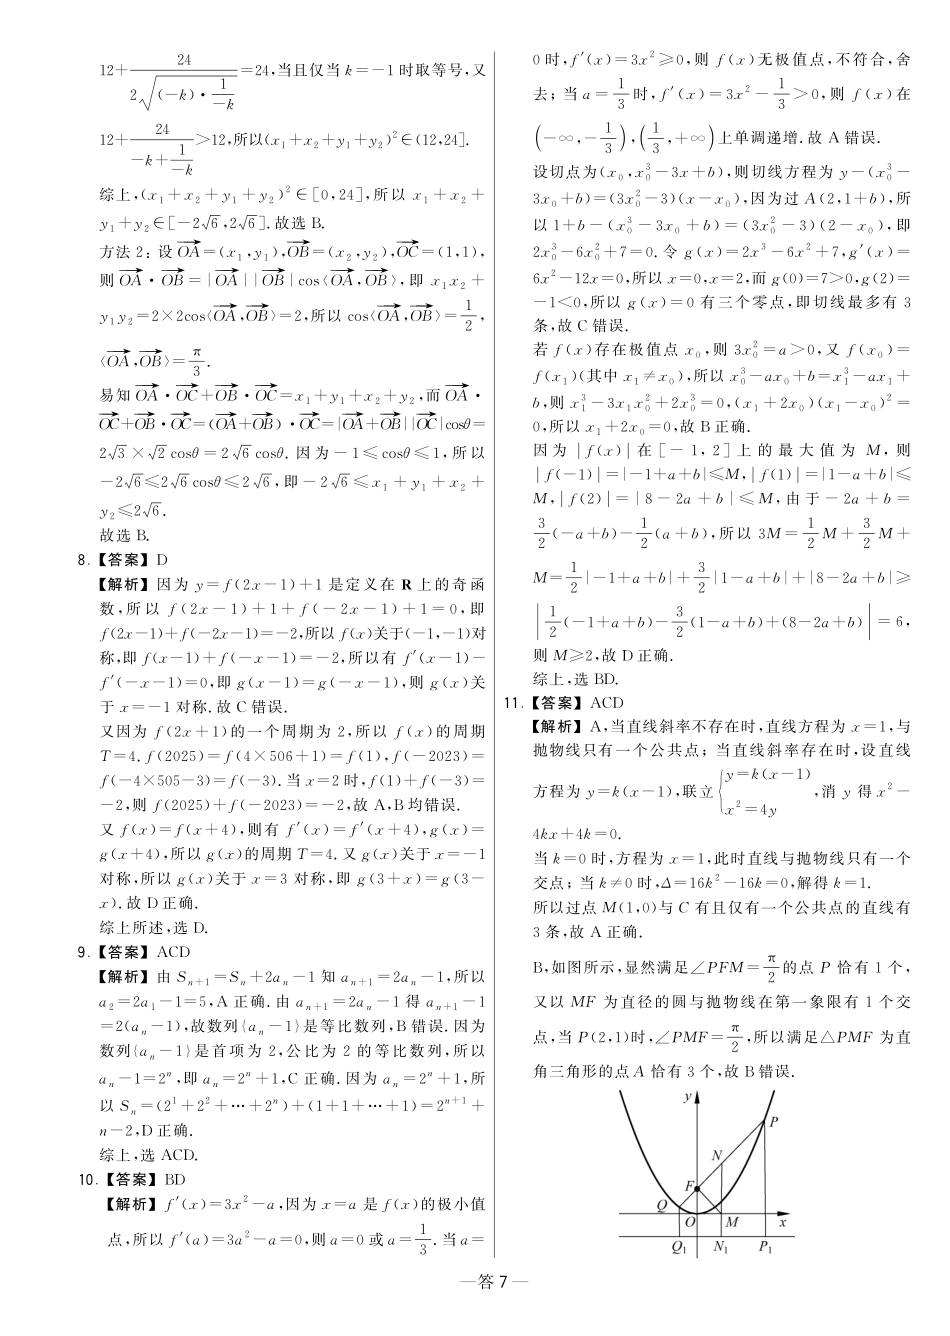 12+24/(2√((-k)·1/(-k)))=24,当且仅当 k=-1 时取等号,又
12+24/(-k+1/(-k))>12,所以(x₁+x₂+y₁+y₂)²∈(12,24].
综上,(x₁+x₂+y₁+y₂)²∈[0,24],所以 x₁+x₂+
y₁+y₂∈[-2√6,2√6].故选 B.
方法 2:设 OA→=(x₁,y₁),OB→=(x₂,y₂),OC→=(1,1),
则 OA→·OB→=|OA→||OB→|cos⟨OA→,OB→⟩,即 x₁x₂+
y₁y₂=2×2cos⟨OA→,OB→⟩=2,所以 cos⟨OA→,OB→⟩=1/2,
⟨OA→,OB→⟩=π/3.
易知 OA→·OC→+OB→·OC→=x₁+y₁+x₂+y₂,而 OA→·
OC→+OB→·OC→=(OA→+OB→)·OC→=|OA→+OB→||OC→|cosθ=
2√3×√2 cosθ=2√6 cosθ. 因为-1≤cosθ≤1,所以
-2√6≤2√6 cosθ≤2√6,即-2√6≤x₁+y₁+x₂+
y₂≤2√6.
故选 B.
8.【答案】D
【解析】因为 y=f(2x-1)+1 是定义在 R 上的奇函
数,所以 f(2x-1)+1+f(-2x-1)+1=0,即
f(2x-1)+f(-2x-1)=-2,所以 f(x)关于(-1,-1)对
称,即 f(x-1)+f(-x-1)=-2,所以有 f′(x-1)-
f′(-x-1)=0,即 g(x-1)=g(-x-1),则 g(x)关
于 x=-1 对称.故 C 错误.
又因为 f(2x+1)的一个周期为 2,所以 f(x)的周期
T=4.f(2025)=f(4×506+1)=f(1),f(-2023)=
f(-4×505-3)=f(-3).当 x=2 时,f(1)+f(-3)=
-2,则 f(2025)+f(-2023)=-2,故 A,B 均错误.
又 f(x)=f(x+4),则有 f′(x)=f′(x+4),g(x)=
g(x+4),所以 g(x)的周期 T=4.又 g(x)关于 x=-1
对称,所以 g(x)关于 x=3 对称,即 g(3+x)=g(3-
x).故 D 正确.
综上所述,选 D.
9.【答案】ACD
【解析】由 Sₙ₊₁=Sₙ+2aₙ-1 知 aₙ₊₁=2aₙ-1,所以
a₂=2a₁-1=5,A 正确.由 aₙ₊₁=2aₙ-1 得 aₙ₊₁-1
=2(aₙ-1),故数列{aₙ-1}是等比数列,B 错误.因为
数列{aₙ-1}是首项为 2,公比为 2 的等比数列,所以
aₙ-1=2ⁿ,即 aₙ=2ⁿ+1,C 正确.因为 aₙ=2ⁿ+1,所
以 Sₙ=(2¹+2²+…+2ⁿ)+(1+1+…+1)=2ⁿ⁺¹+
n-2,D 正确.
综上,选 ACD.
10.【答案】BD
【解析】f′(x)=3x²-a,因为 x=a 是 f(x)的极小值
点,所以 f′(a)=3a²-a=0,则 a=0 或 a=1/3.当 a=
0 时,f′(x)=3x²≥0,则 f(x)无极值点,不符合,舍
去;当 a=1/3 时,f′(x)=3x²-1/3>0,则 f(x)在
(-∞,-1/3),(1/3,+∞)上单调递增.故 A 错误.
设切点为(x₀,x₀³-3x+b),则切线方程为 y-(x₀³-
3x₀+b)=(3x₀²-3)(x-x₀),因为过 A(2,1+b),所
以 1+b-(x₀³-3x₀+b)=(3x₀²-3)(2-x₀),即
2x₀³-6x₀²+7=0.令 g(x)=2x³-6x²+7,g′(x)=
6x²-12x=0,所以 x=0,x=2,而 g(0)=7>0,g(2)=
-1<0,所以 g(x)=0 有三个零点,即切线最多有 3
条,故 C 错误.
若 f(x)存在极值点 x₀,则 3x₀²=a>0,又 f(x₀)=
f(x₁)(其中 x₁≠x₀),所以 x₀³-ax₀+b=x₁³-ax₁+
b,则 x₁³-3x₁x₀²+2x₀³=0,(x₁+2x₀)(x₁-x₀)²=
0,所以 x₁+2x₀=0,故 B 正确.
因为|f(x)|在[-1,2]上的最大值为 M,则
|f(-1)|=|-1+a+b|≤M,|f(1)|=|1-a+b|≤
M,|f(2)|=|8-2a+b|≤M,由于-2a+b=
3/2(-a+b)-1/2(a+b),所以 3M=1/2M+3/2M+
M=1/2|-1+a+b|+3/2|1-a+b|+|8-2a+b|≥
|1/2(-1+a+b)-3/2(1-a+b)+(8-2a+b)|=6,
则 M≥2,故 D 正确.
综上,选 BD.
11.【答案】ACD
【解析】A,当直线斜率不存在时,直线方程为 x=1,与
抛物线只有一个公共点;当直线斜率存在时,设直线
方程为 y=k(x-1),联立{y=k(x-1) x²=4y,消 y 得 x²-
4kx+4k=0.
当 k=0 时,方程为 x=1,此时直线与抛物线只有一个
交点;当 k≠0 时,Δ=16k²-16k=0,解得 k=1.
所以过点 M(1,0)与 C 有且仅有一个公共点的直线有
3 条,故 A 正确.
B,如图所示,显然满足∠PFM=π/2 的点 P 恰有 1 个,
又以 MF 为直径的圆与抛物线在第一象限有 1 个交
点,当 P(2,1)时,∠PMF=π/2,所以满足△PMF 为直
角三角形的点 A 恰有 3 个,故 B 错误.
y
P
N
F
Q
O
M
x
Q₁
N₁
P₁
—答 7—